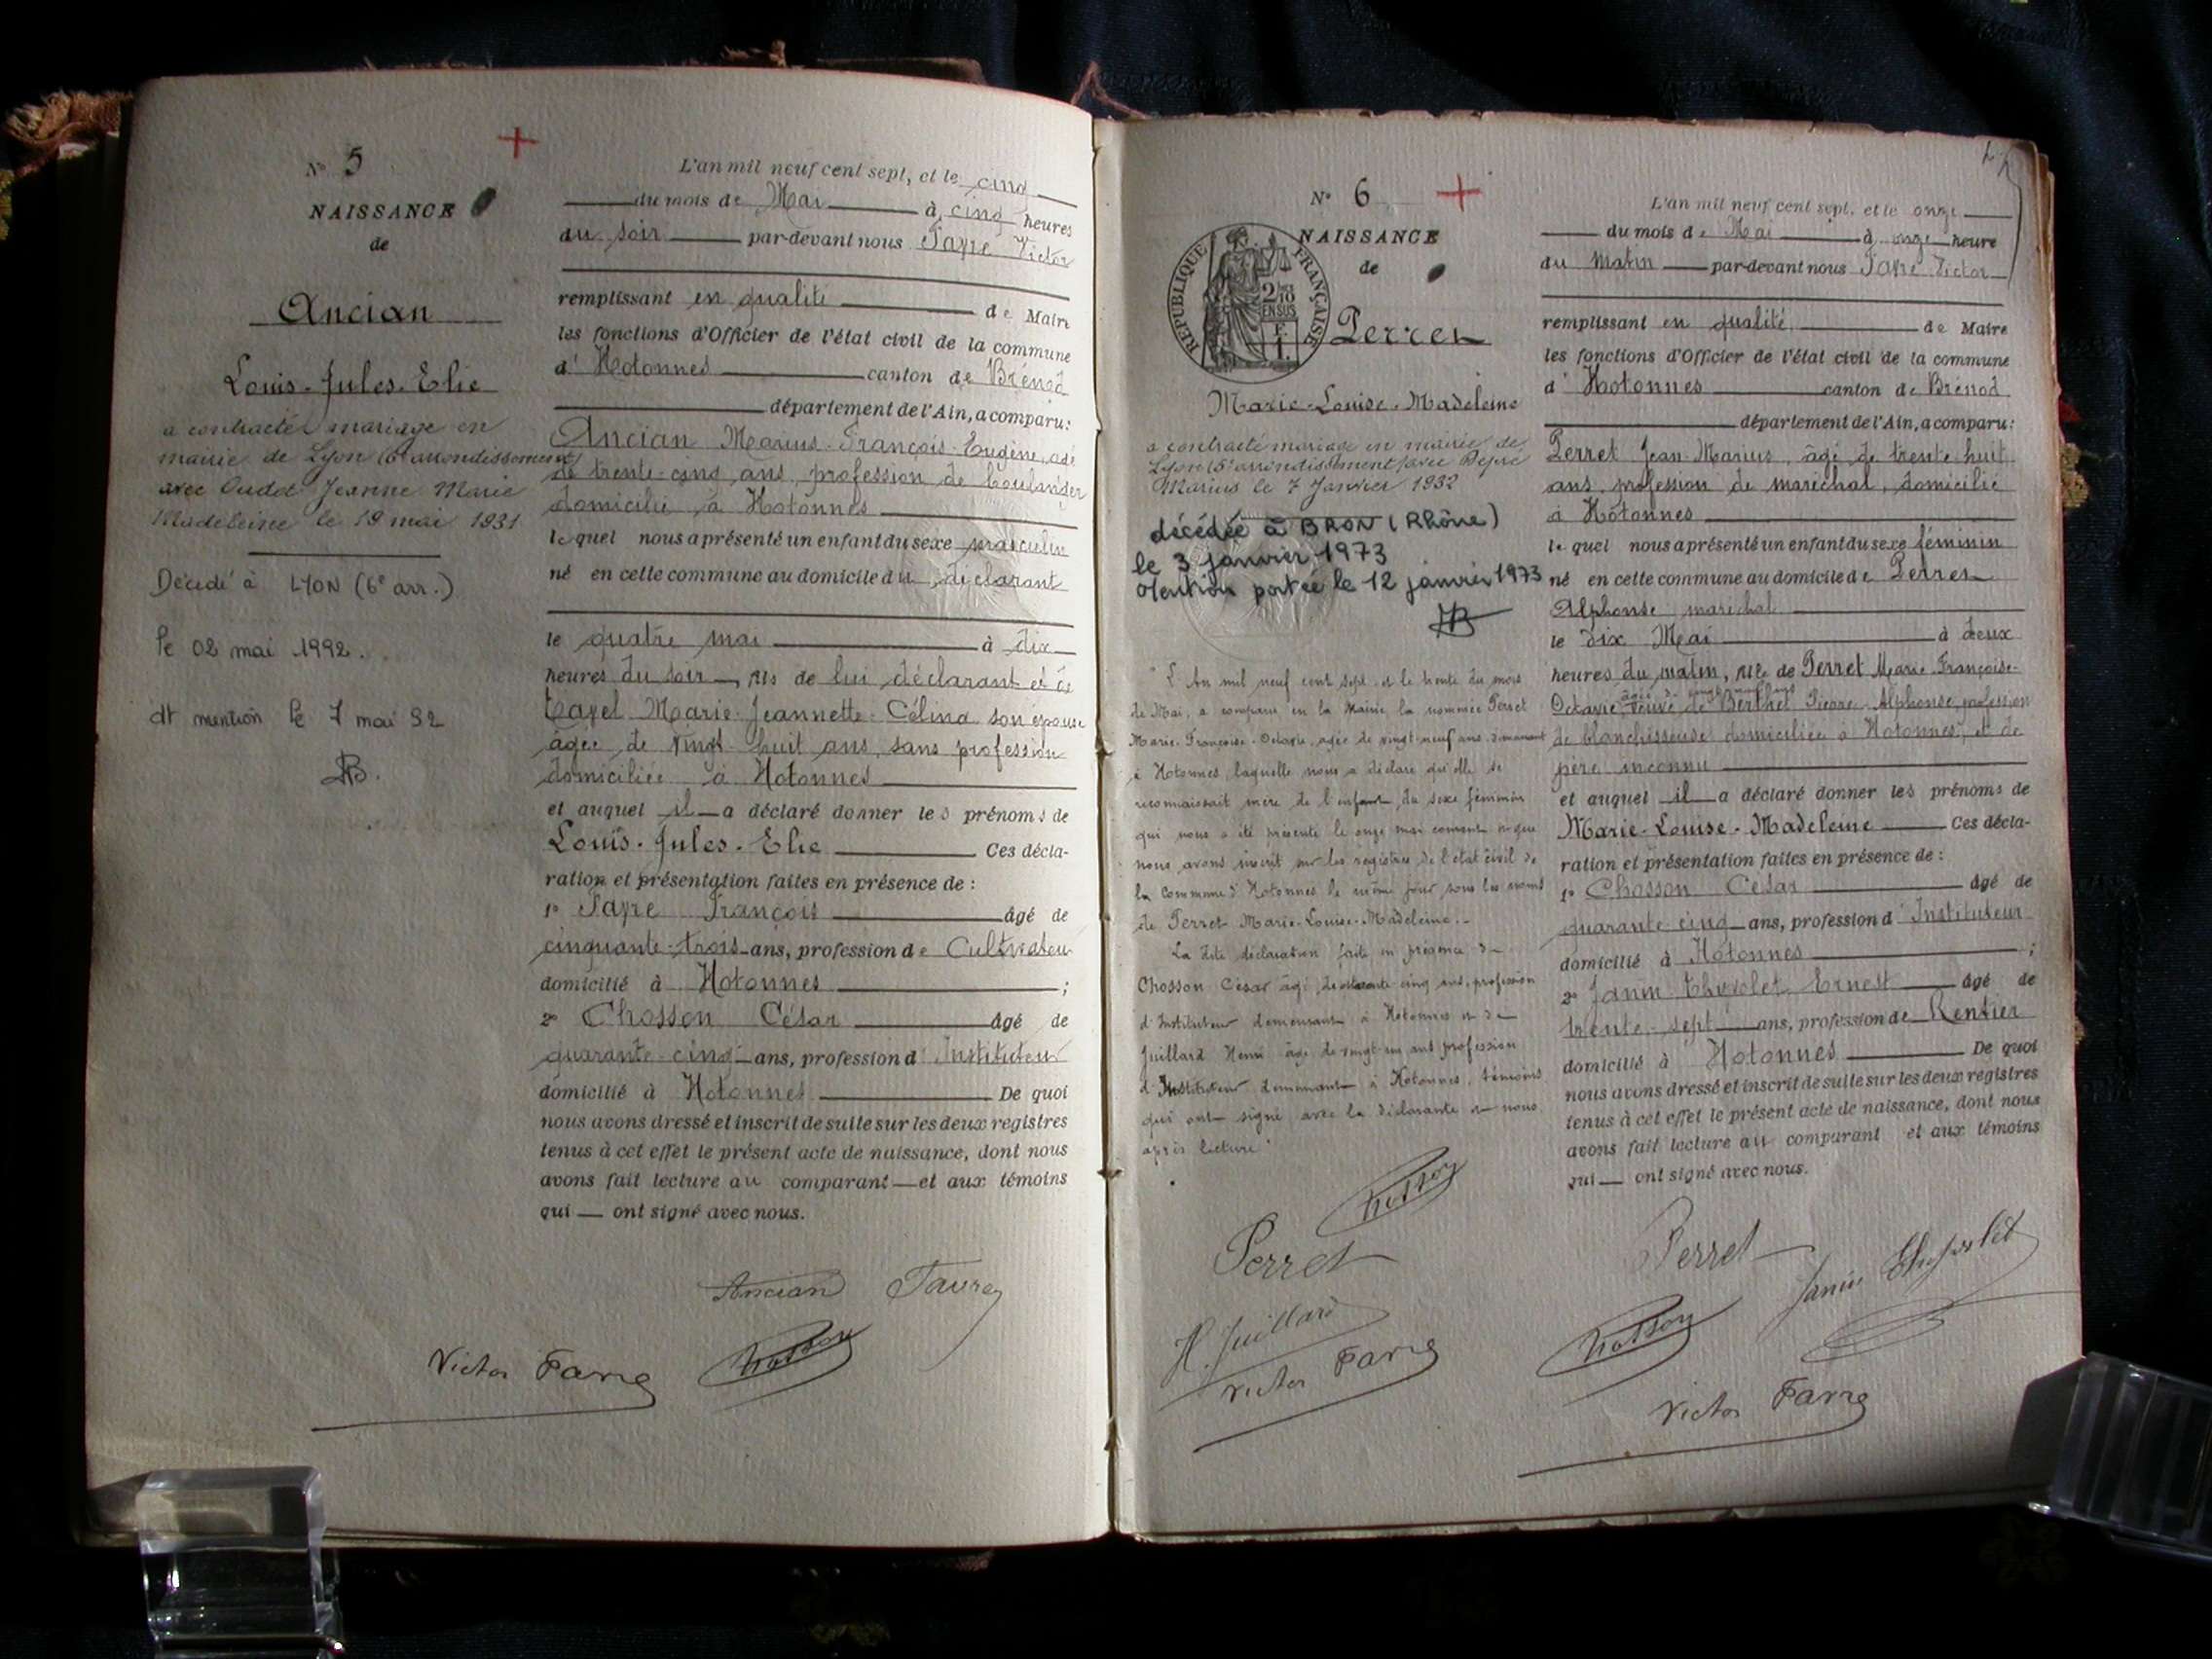 N° 5
NAISSANCE
de
Ancian
Louis-Jules-Elie
a contracté mariage en
mairie de Lyon (6e arrondissement)
avec Oudot Jeanne Marie
Madeleine le 19 mai 1931
Décédé à LYON (6e arr.)
le 02 mai 1992.
dt mention le 7 mai 92
L'an mil neuf cent sept, et le cinq
du mois de Mai à cinq heures
du soir par-devant nous Favre Victor
remplissant en qualité de Maire
les fonctions d'Officier de l'état civil de la commune
d' Hotonnes canton de Brénod
département de l'Ain, a comparu:
Ancian Marius-François-Eugène, agé
de trente-cinq ans, profession de boulanger
domicilié à Hotonnes
lequel nous a présenté un enfant du sexe masculin
né en cette commune au domicile du déclarant
le quatre mai à dix
heures du soir, fils de lui, déclarant et de
Marie-Jeannette-Célina son épouse
âgée de vingt-huit ans, sans profession
domiciliée à Hotonnes
et auquel il a déclaré donner les prénoms de
Louis-Jules-Elie Ces décla-
ration et présentation faites en présence de :
1° Favre François âgé de
cinquante-trois ans, profession de Cultivateur
domicilié à Hotonnes ;
2° Chosson César âgé de
quarante-cinq ans, profession d' Instituteur
domicilié à Hotonnes De quoi
nous avons dressé et inscrit de suite sur les deux registres
tenus à cet effet le présent acte de naissance, dont nous
avons fait lecture au comparant et aux témoins
qui ont signé avec nous.
Ancian Favre
Victor Favre Chosson
N° 6
NAISSANCE
de
RÉPUBLIQUE FRANÇAISE
2/10 EN SUS
Perret
Marie-Louise-Madeleine
a contracté mariage en mairie de
Lyon arrondissement) avec
Marius le 7 Janvier 1932
décédée à BRON (Rhône)
le 3 janvier 1973
Mention portée le 12 janvier 1973
L'An mil neuf cent sept et le trente du mois
de Mai, a comparu en la Mairie la nommée Perret
Marie-Françoise-Octavie, agée de vingt neuf ans, demeurant
à Hotonnes, laquelle nous a déclaré qu'elle se
reconnaissait mère de l'enfant du sexe féminin
qui nous a été présenté le onze mai courant et que
nous avons inscrit sur les registres de l'état civil de
la Commune d'Hotonnes le même jour sous les noms
de Perret Marie-Louise-Madeleine.
La dite déclaration faite en présence de
Chosson César âgé de quarante cinq ans, profession
d'Instituteur demeurant à Hotonnes et de
Juillard Henri âgé de vingt-un ans profession
d'Instituteur demeurant à Hotonnes, témoins
qui ont signé avec la déclarante et nous
après lecture
Chosson
Perret
H. Juillard
Victor Favre
L'an mil neuf cent sept, et le onze
du mois de Mai à onze heure
du matin par-devant nous Favre Victor
remplissant en qualité de Maire
les fonctions d'Officier de l'état civil de la commune
d' Hotonnes canton de Brénod
département de l'Ain, a comparu:
Perret Jean-Marius, âgé de trente-huit
ans, profession de maréchal, domicilié
à Hotonnes
lequel nous a présenté un enfant du sexe féminin
né en cette commune au domicile de Perret
Alphonse maréchal
le dix Mai à deux
heures du matin, fille de Perret Marie Françoise-
agée de vingt neuf ans
Octavie, veuve de Berthet Pierre-Alphonse, profession
de blanchisseuse domiciliée à Hotonnes, et de
père inconnu
et auquel il a déclaré donner les prénoms de
Marie-Louise-Madeleine Ces décla-
ration et présentation faites en présence de :
1° Chosson César âgé de
quarante cinq ans, profession d' Instituteur
domicilié à Hotonnes ;
2° Janin Ernest âgé de
trente-sept ans, profession de Rentier
domicilié à Hotonnes De quoi
nous avons dressé et inscrit de suite sur les deux registres
tenus à cet effet le présent acte de naissance, dont nous
avons fait lecture au comparant et aux témoins
qui ont signé avec nous.
Perret
Janin
Chosson
Victor Favre